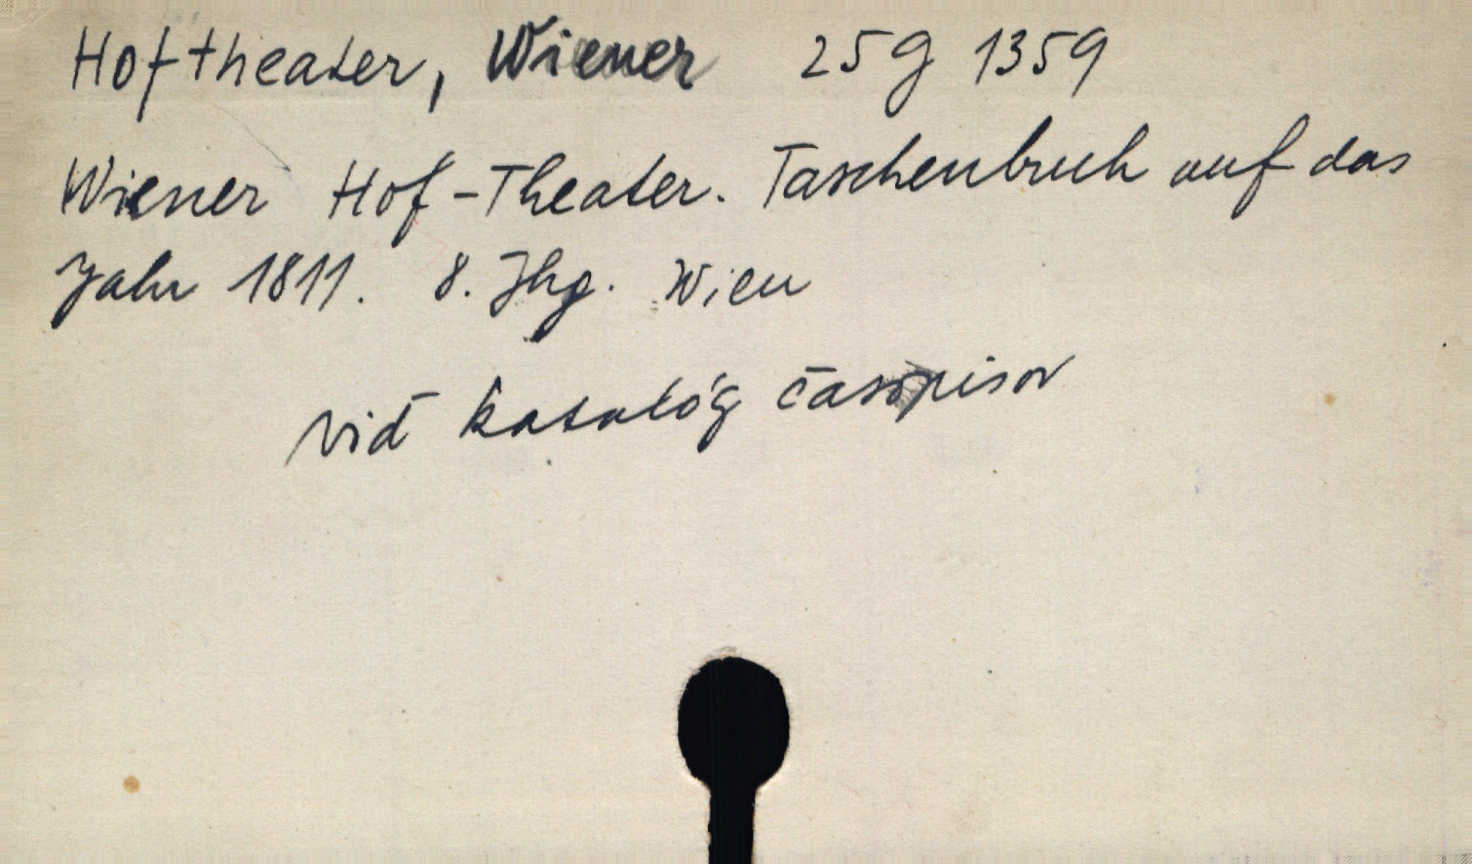 Hoftheater, Wiener 25 g 1359
Wiener Hof-Theater. Taschenbuch auf das
Jahr 1811. 8. Jhg. Wien
viď katalóg časopisov